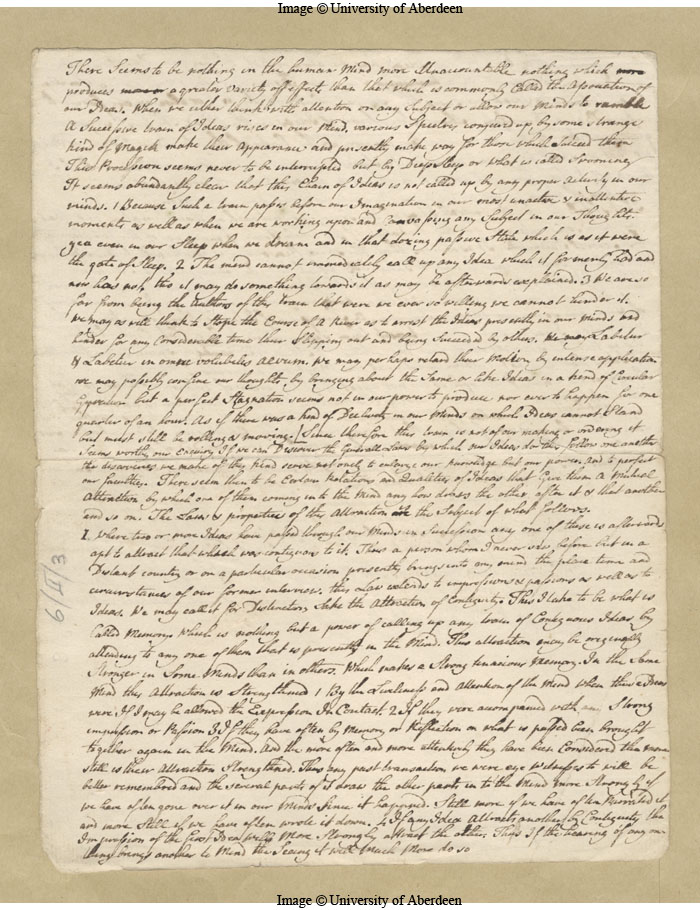 Image © University of Aberdeen
There Seems to be nothing in the human Mind more Unaccountable nothing which more
produces more a greater variety of effects than that which is commonly called the Association of
our Ideas, When we either think with attention on any Subject or allow our Minds to ramble
A Successive train of Ideas rises in our Mind, various Spectres conjured up by some strange
kind of Magick make their Appearance and presently make way for those which Succeed them
This Procession seems never to be interrupted but by Deep Sleep or what is called Swooning
It seems abundantly clear that this Chain of Ideas is not called up by any proper activity in our
minds. 1 Because Such a train passes before our Imagination in our most inactive & inattentive
moments as well as when we are working upon and any Subject in our Thoughts
yea even in our Sleep when we dream and in that dozing passive State which is as it were
the gate of Sleep. 2 The mind cannot immediately call up any Idea which it formerly had and
now has not, tho it may do something towards it as may be afterwards explained. 3 We are so
far from being the Authors of this train that were we ever so willing we cannot hinder it.
We may as well think to Stope the Course of a River as to arrest the Ideas presently in our Minds and
hinder for any Considerable time their Slipping out and being Succeeded by others. We may Labitur
& Labetur in omne volubilis Aevum. We may perhaps retard their Motion by intense application
we may possibly confine our thoughts by bringing about the Same or like Ideas in a kind of Circular
but a perfect Stagnation seems not in our power to produce nor ever to happen for one
quarter of an hour. As if there was a kind of Declivity in our Minds on which Ideas cannot Stand
but must still be rolling & moving. [Since therefore this train is not of our making or ordering it
Seems worth our Enquiry If we can Discover the Generall Laws by which our Ideas do thus follow one another
the discoveries we make of this kind serve not only to enlarge our knowledge but our power and to perfect
our faculties. There seem then to be Certain Relations and Qualities of Ideas that Give them a Mutual
Attraction by which one of them coming into the Mind any how draws the other after it & that another
and so on. The Laws & properties of this Attraction are the Subject of what follows.
1. Where two or more Ideas have passed through our Minds in Succession any one of these is afterwards
apt to attract that which was contiguous to it. Thus a person whom I never saw before but in a
Distant country or on a particular occasion presently brings into my mind the place time and
circumstances of our former interview. this Law extends to impressions & passions as well as to
Ideas. We may call it for Distinction Sake the Attraction of Contiguity. This I take to be what is
Called Memory Which is nothing but a power of calling up any train of Contiguous Ideas by
attending to any one of them that is presently in the Mind. This attraction may be originally
Stronger in Some Minds than in others. Which makes a Strong tenacious Memory. In the Same
Mind this Attraction is Strengthned 1 By the Liveliness and attention of the Mind when these Ideas
were If I may be allowed the Expression In Contact 2 If they were accompanied with any Strong
impression or Passion 3 If they have often by Memory or Reflection on what is passed been brought
together again in the Mind. And the more often and more attentively they have been Considered the more
still is their Attraction Strengthned. Thus any past transaction we were eye Witnesses to will be
better remembred and the several parts of it draw the other parts in to the Mind more Strongly if
we have often gone over it in our Minds since it happened. Still more if we have often Narrated it
and more Still if we have often wrote it down. 4 If any Idea Attracts another by Contiguity the
Impression of the first Idea will More Strongly attract the other. Thus If the hearing of any one
thing brings another to Mind the Seeing it will Much More do so
6/II/3
Image © University of Aberdeen